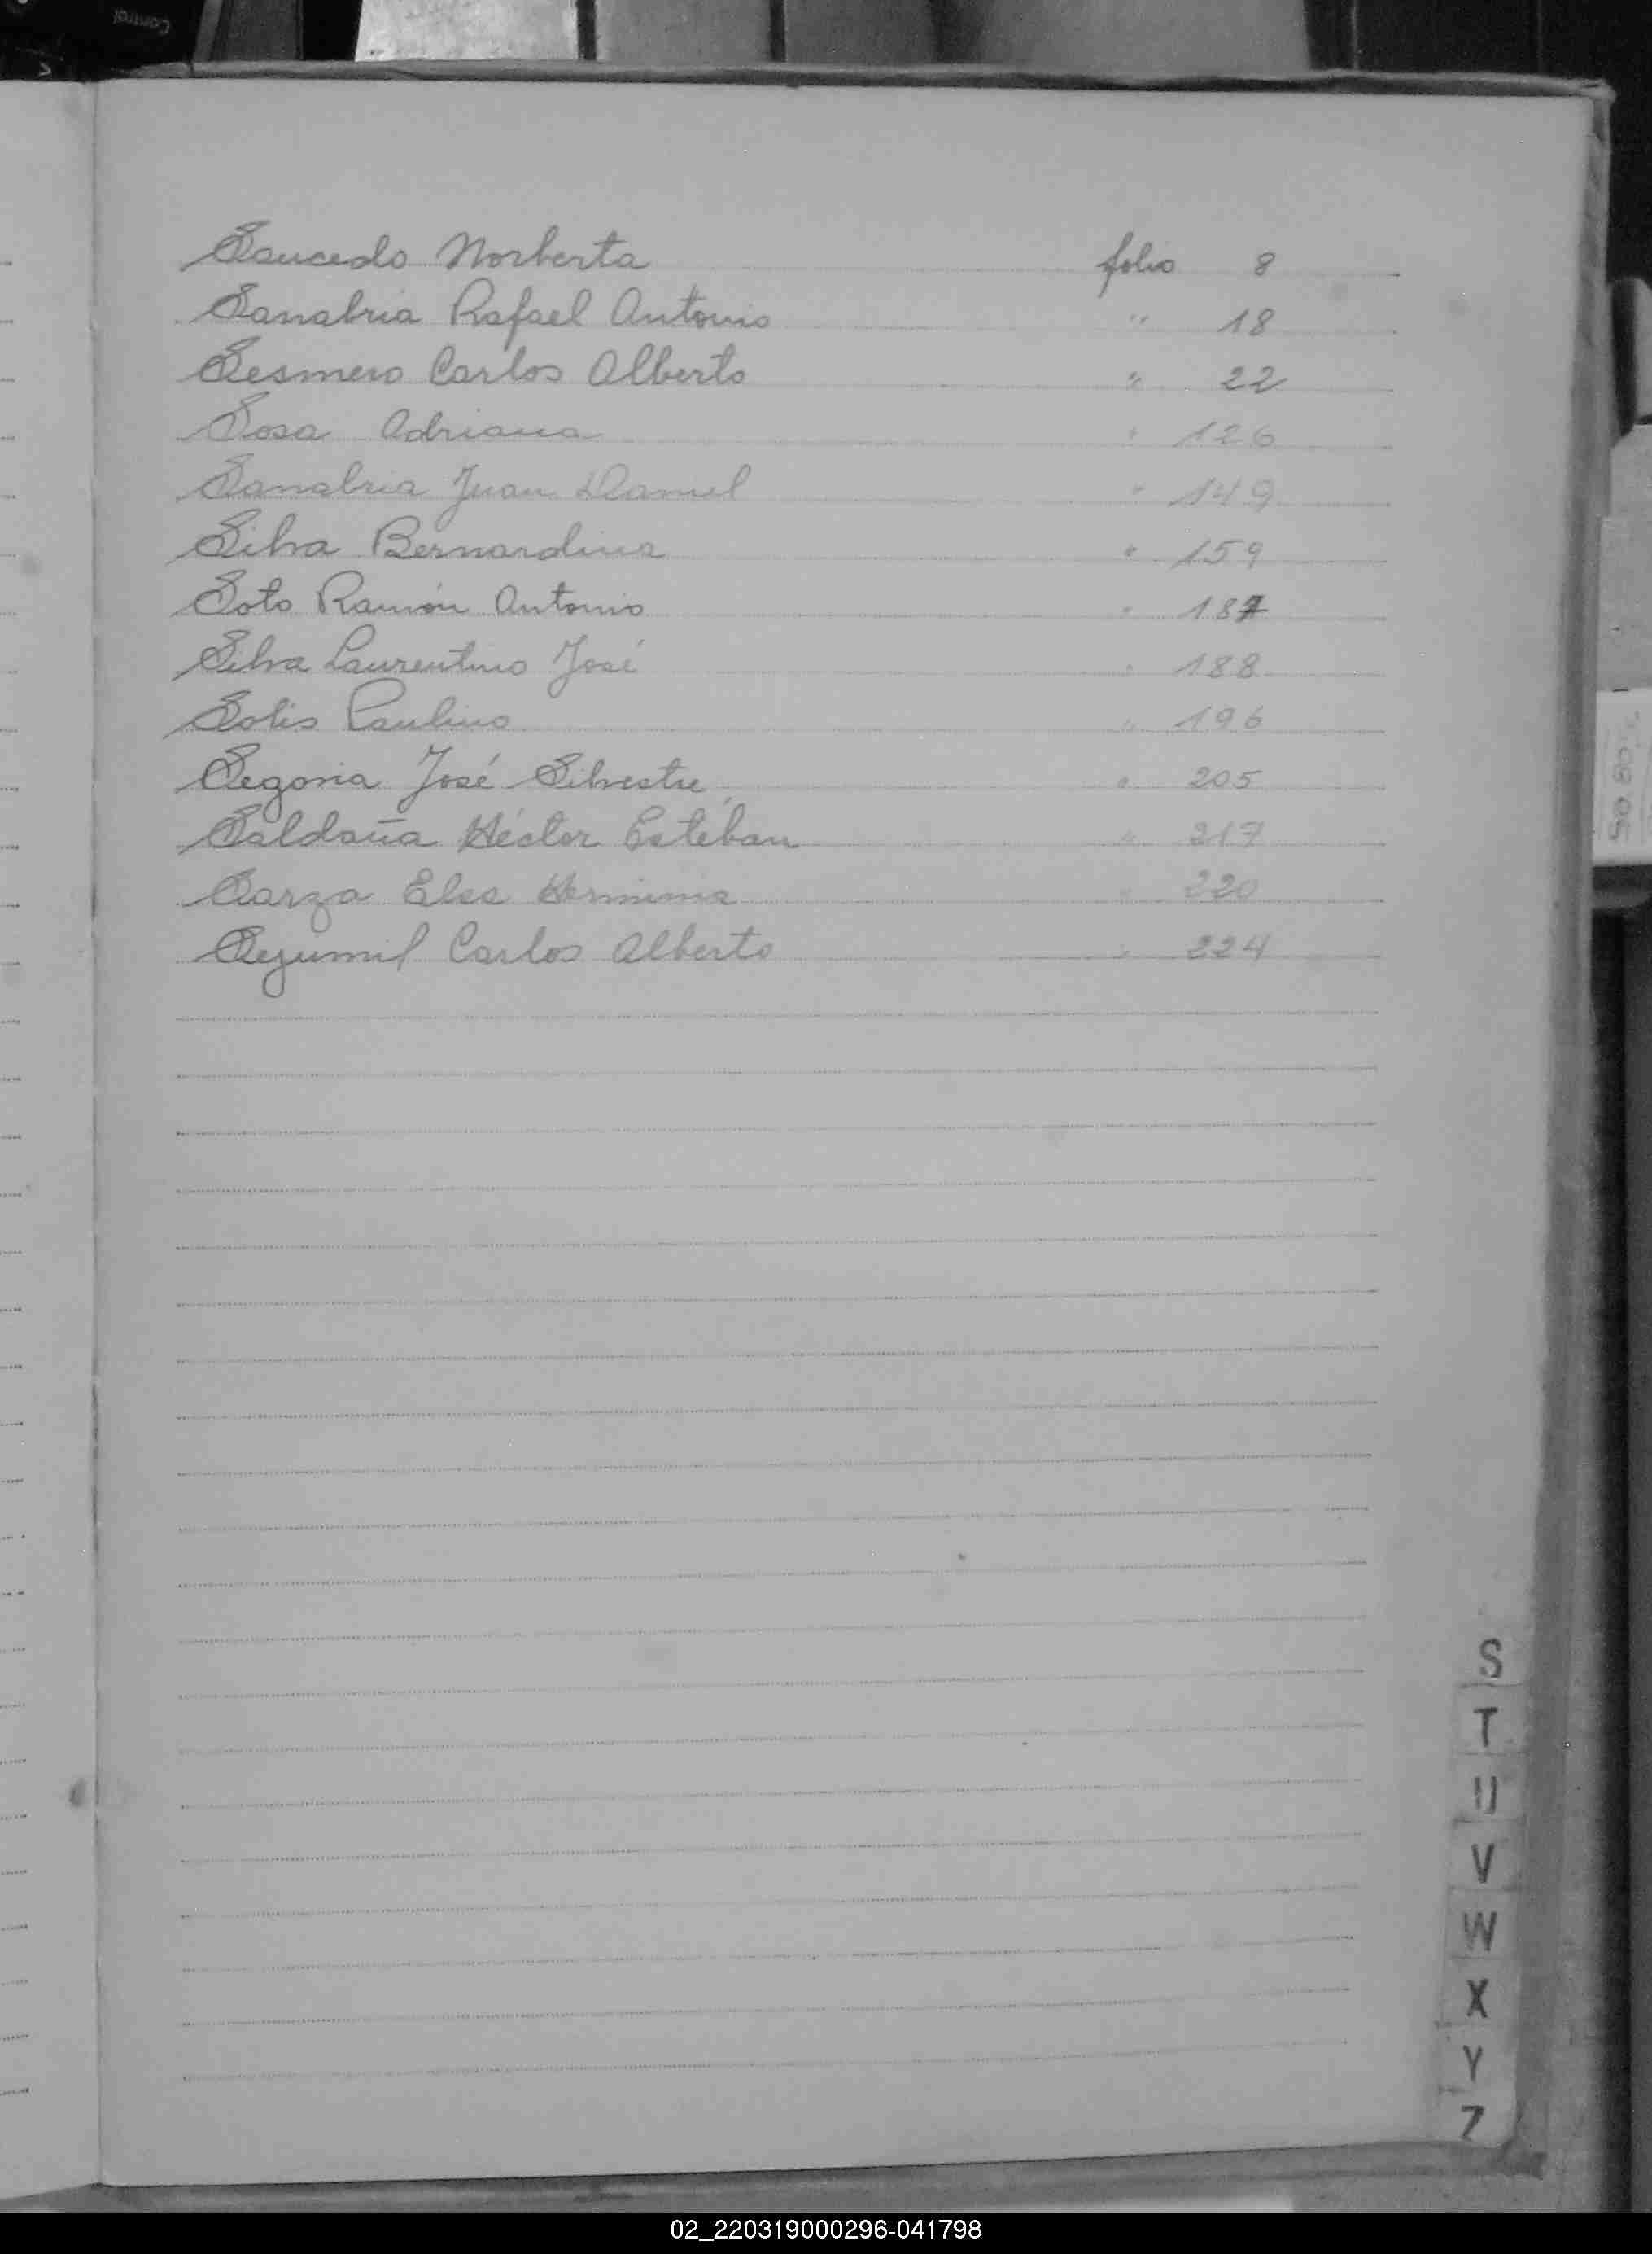 Saucedo Norberta folio 8
Sanabria Rafael Antonio " 18
Sesmero Carlos Alberto " 22
Sosa Adriana " 126
Sanabria Juan Daniel " 149
Silva Bernardina " 159
Soto Ramón Antonio " 187
Silva Laurentino José " 188
Solis Paulino " 196
Segovia José Silvestre " 205
Saldaña Héctor Estéban " 217
Sarza Elsa Herminia " 220
Carlos Alberto " 224
S
T
U
V
W
X
Y
Z
02_220319000296-041798